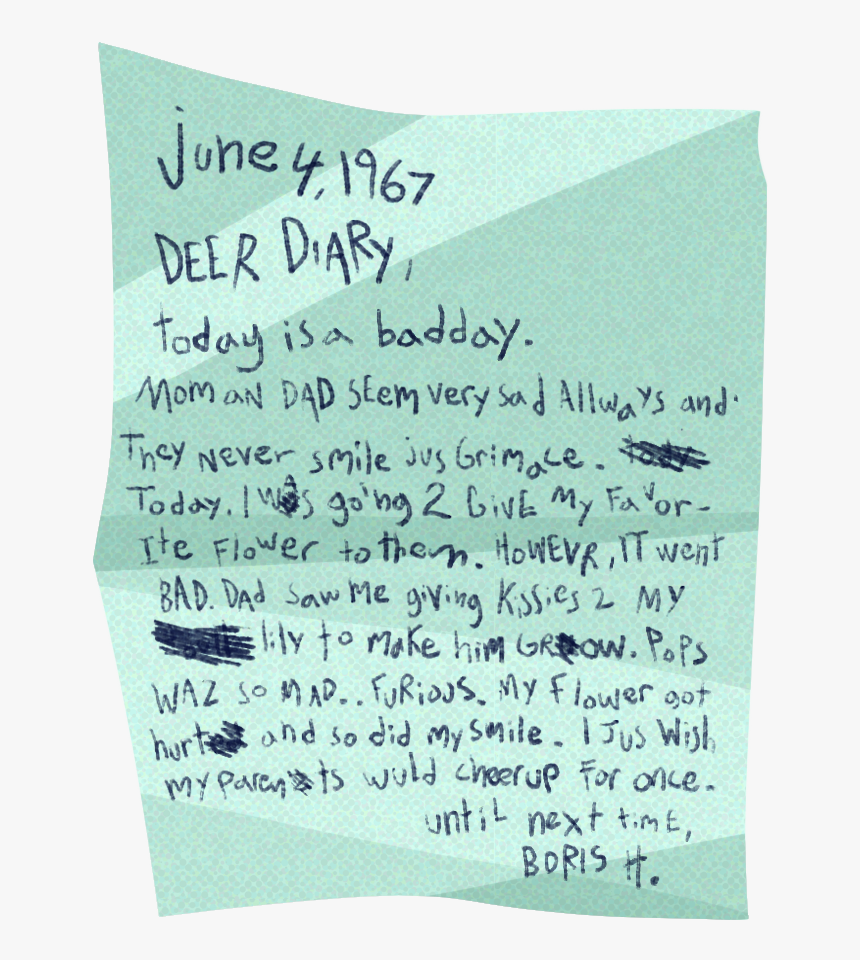 June 4, 1967
DEER DiARy,
today is a badday.
Mom aN DAD SEEm very sad Allways and
They Never smile jus Grimace.
Today. I wAs going 2 GivE My Favor-
Ite Flower to them. HoWEVR, IT went
BAD. DAd saw Me giving Kissies 2 MY
lily to make him GROW. POPS
WAZ so MAD.. FURiOUS. My Flower got
hurt and so did my smile. I Jus Wish
my parents wuld cheerup For once.
until next timE,
BORIS H.